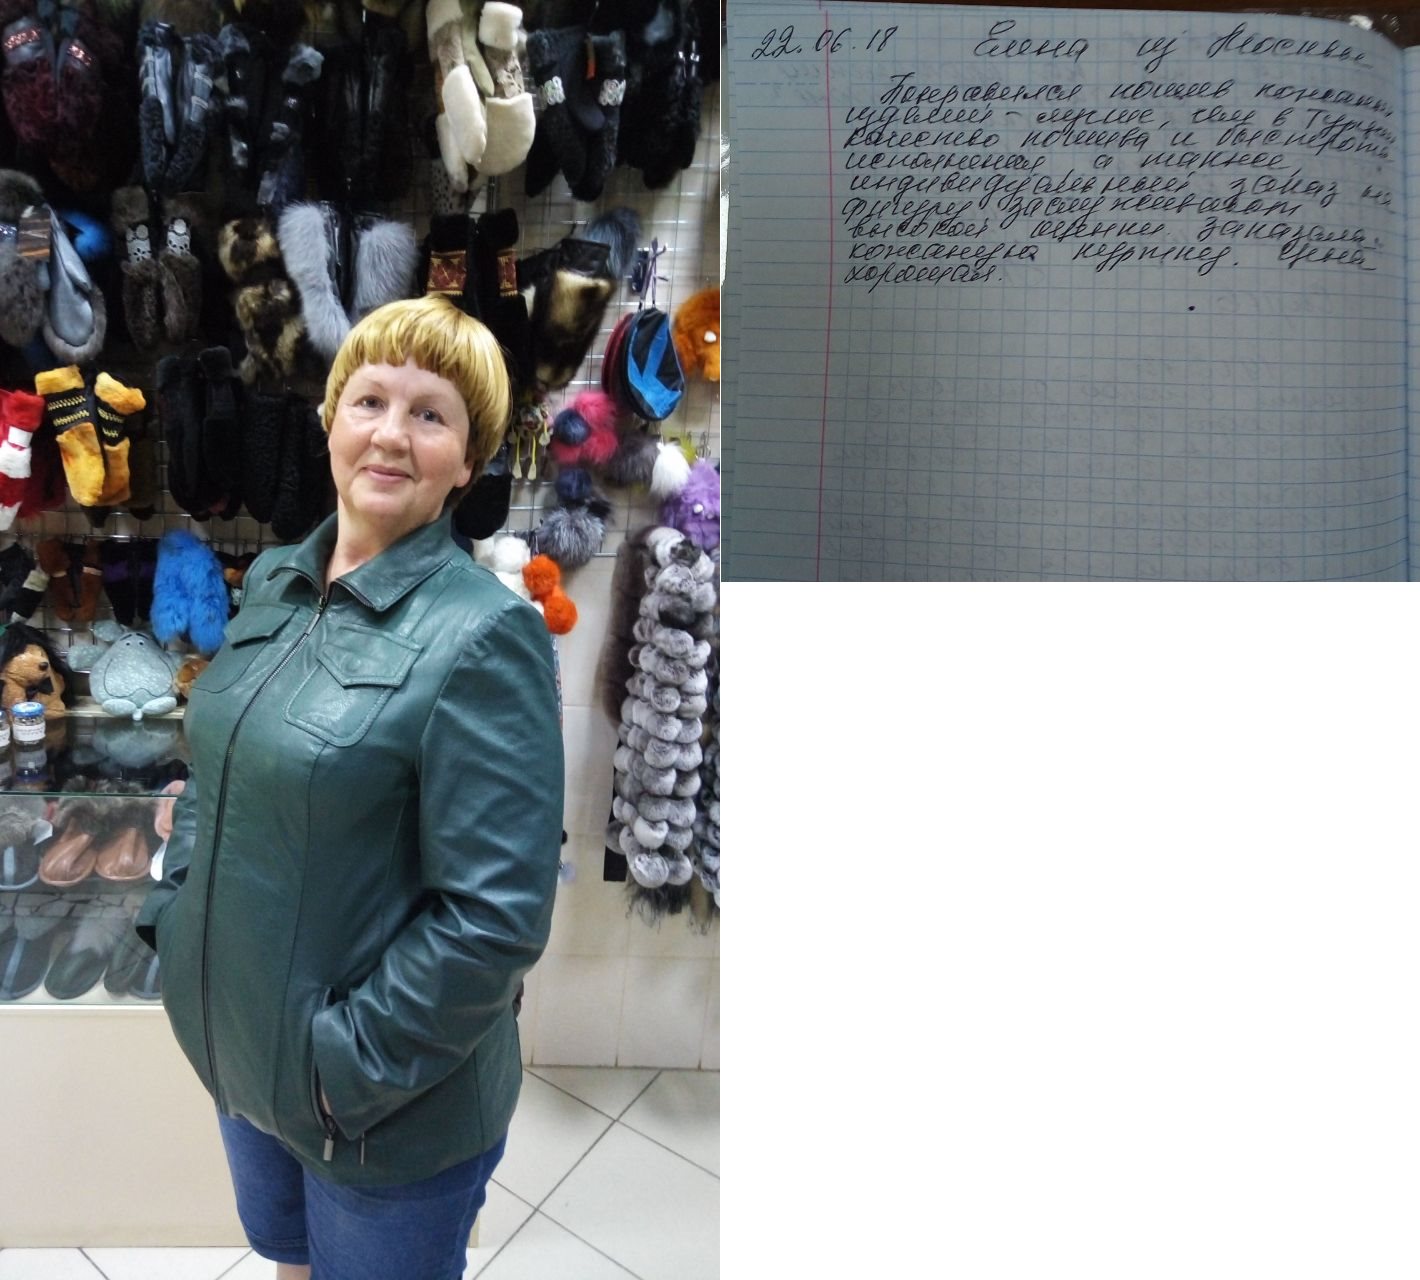 22.06.18 Елена из Москвы
Понравился пошив кожаных
изделий - лучше, чем в Турции
качество пошива и быстрота
исполнения, а также,
индивидуальный заказ на
фигуру заслуживают
высокой оценки. Заказала
кожаную куртку. Цена
хорошая.